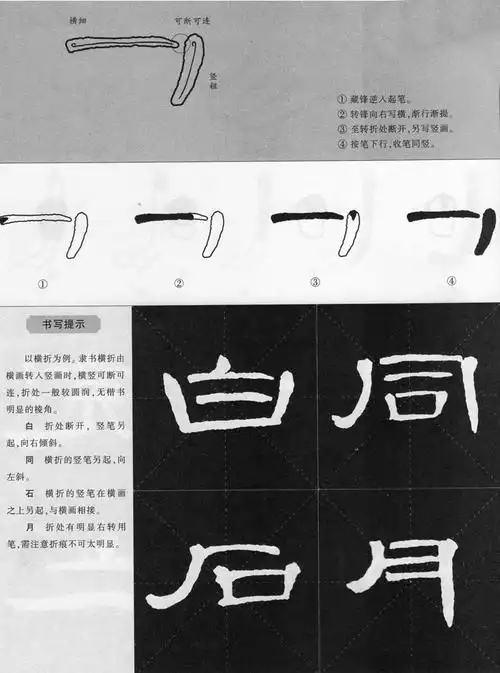 横细
可断可连
竖粗
① 藏锋逆入起笔。
② 转锋向右写横，渐行渐提。
③ 至转折处断开，另写竖画。
④ 按笔下行，收笔同竖。
① ② ③ ④
书写提示
以横折为例。隶书横折由
横画转入竖画时，横竖可断可
连，折处一般较圆润，无楷书
明显的棱角。
白 折处断开，竖笔另
起，向右倾斜。
同 横折的竖笔另起，向
左斜。
石 横折的竖笔在横画
之上另起，与横画相接。
月 折处有明显右转用
笔，需注意折痕不可太明显。
白 同
石 月